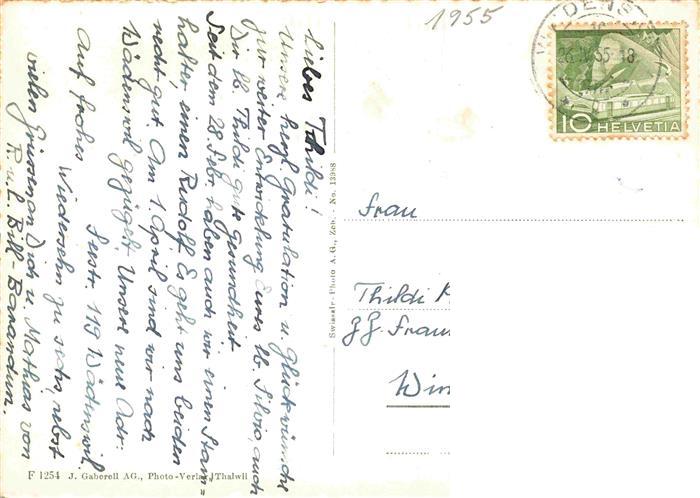 Liebes Thildi!
Unsere herzl. Gratulation u. Glückwünsche
zur weiter Entwicklung Eures lb. Silvio, auch
Dir lb. Thildi gute Gesundheit
Seit dem 28. Febr. haben auch wir einen Stam=
halter, einen Rudolf. Es geht uns beiden
recht gut. Am 1. April sind wir nach
Wädenswil gezügelt. Unsere neue Adr:
Seestr. 119 Wädenswil.
Auf frohes
Wiedersehn zu sechs, nebst
vielen Grüssen an Dich u. Mathias von
R. u. L. Bill-Bonardun.
F 1254 J. Gaberell AG., Photo-Verlag, Thalwil
Swissair-Photo A. G., Zch. - No. 13988
1955
DENS
55-18
10 HELVETIA
Frau
Thildi K
Win